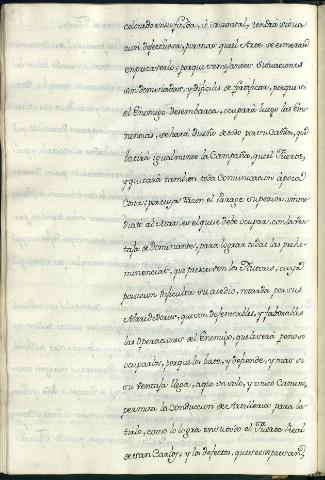 colocado en su falda, ò orizontal, tendrà situa
cion defectuosa, por mas que el Arte se esmere
en precaverlo; porque semejantes situaciones
son dominadas, y dificiles de fortificar, porque si
el Enemigo desembarca, ocuparà luego las Emi
nencias, se harà dueño de todo por su Cañon, que
batirà igualmente la Campaña, que el Fuerte,
y quitarà tambien toda Comunicacion à poca
Costa; por cuya razon el parage superior, inme
diato al Mar, es el que debe ocupar, con la ven
taja de dominante, para lograr todas las prehe
minencias, que prescriven los Autores, cuya
posicion dificulta su asedio, retarda por sus
Alrededores, que son defensables, y favorables
las Operaciones del Enemigo, que le serà penoso
ocuparlos, porque los bate, y defiende, y mas si
su ventaja llega, a que un solo, y unico Camino,
permita la conduccion de Artilleria para ba
tirlo, como lo logra en un todo el Fuerte Real
de San Carlos, y los defectos, que se expresan